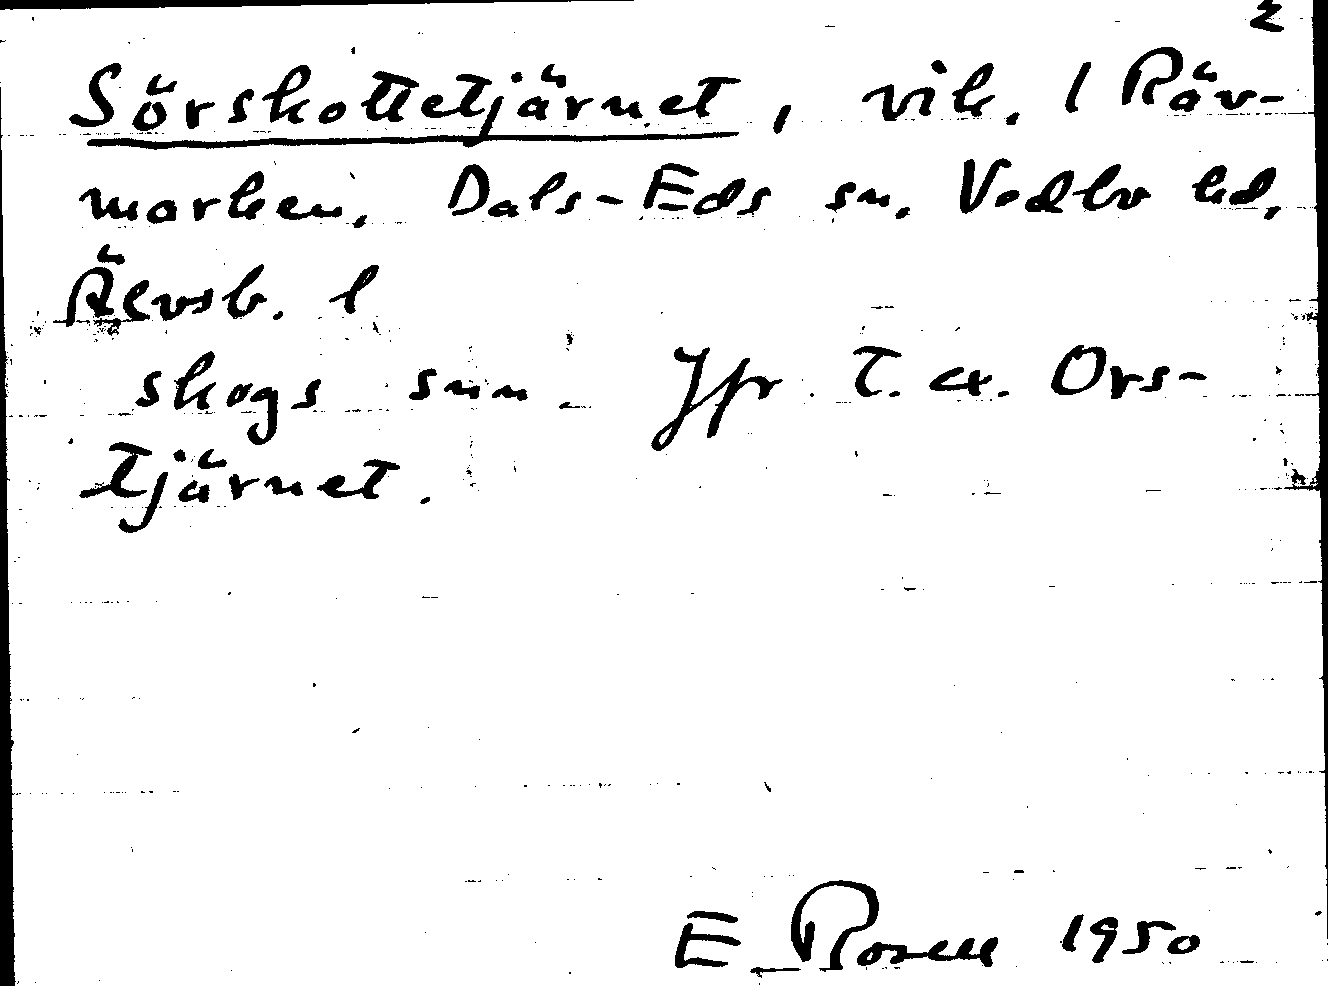 2
Sörskottetjärnet, vik. I Räv-
marken, Dals-Eds sn. Vedbo hd,
Älvsb. l
skogs smn. Jfr T. ex. Ors-
tjärnet.
E Rosell 1950